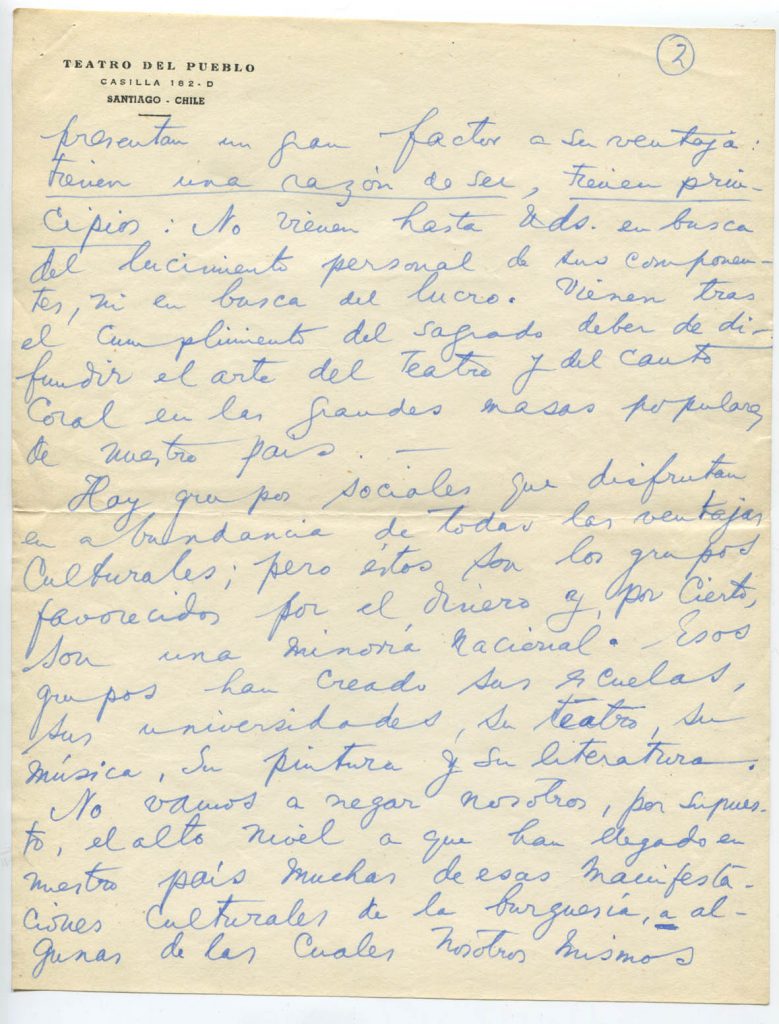 2
TEATRO DEL PUEBLO
CASILLA 182-D
SANTIAGO - CHILE
presentan un gran factor a su ventaja:
tienen una razón de ser, tienen prin-
cipios: No vienen hasta Uds. en busca
del lucimiento personal de sus componen-
tes, ni en busca del lucro. Vienen tras
el cumplimiento del sagrado deber de di-
fundir el arte del Teatro y del Canto
Coral en las grandes masas populares
de nuestro país. —
Hay grupos sociales que disfrutan
en abundancia de todas las ventajas
Culturales; pero éstos son los grupos
favorecidos por el dinero y, por cierto,
son una minoría Nacional. - Esos
grupos han creado sus escuelas,
sus universidades, su teatro, su
música, su pintura y su literatura.
No vamos a negar nosotros, por supues-
to, el alto nivel a que han llegado en
nuestro país muchas de esas manifesta-
ciones culturales de la burguesía, a al-
gunas de las cuales nosotros mismos